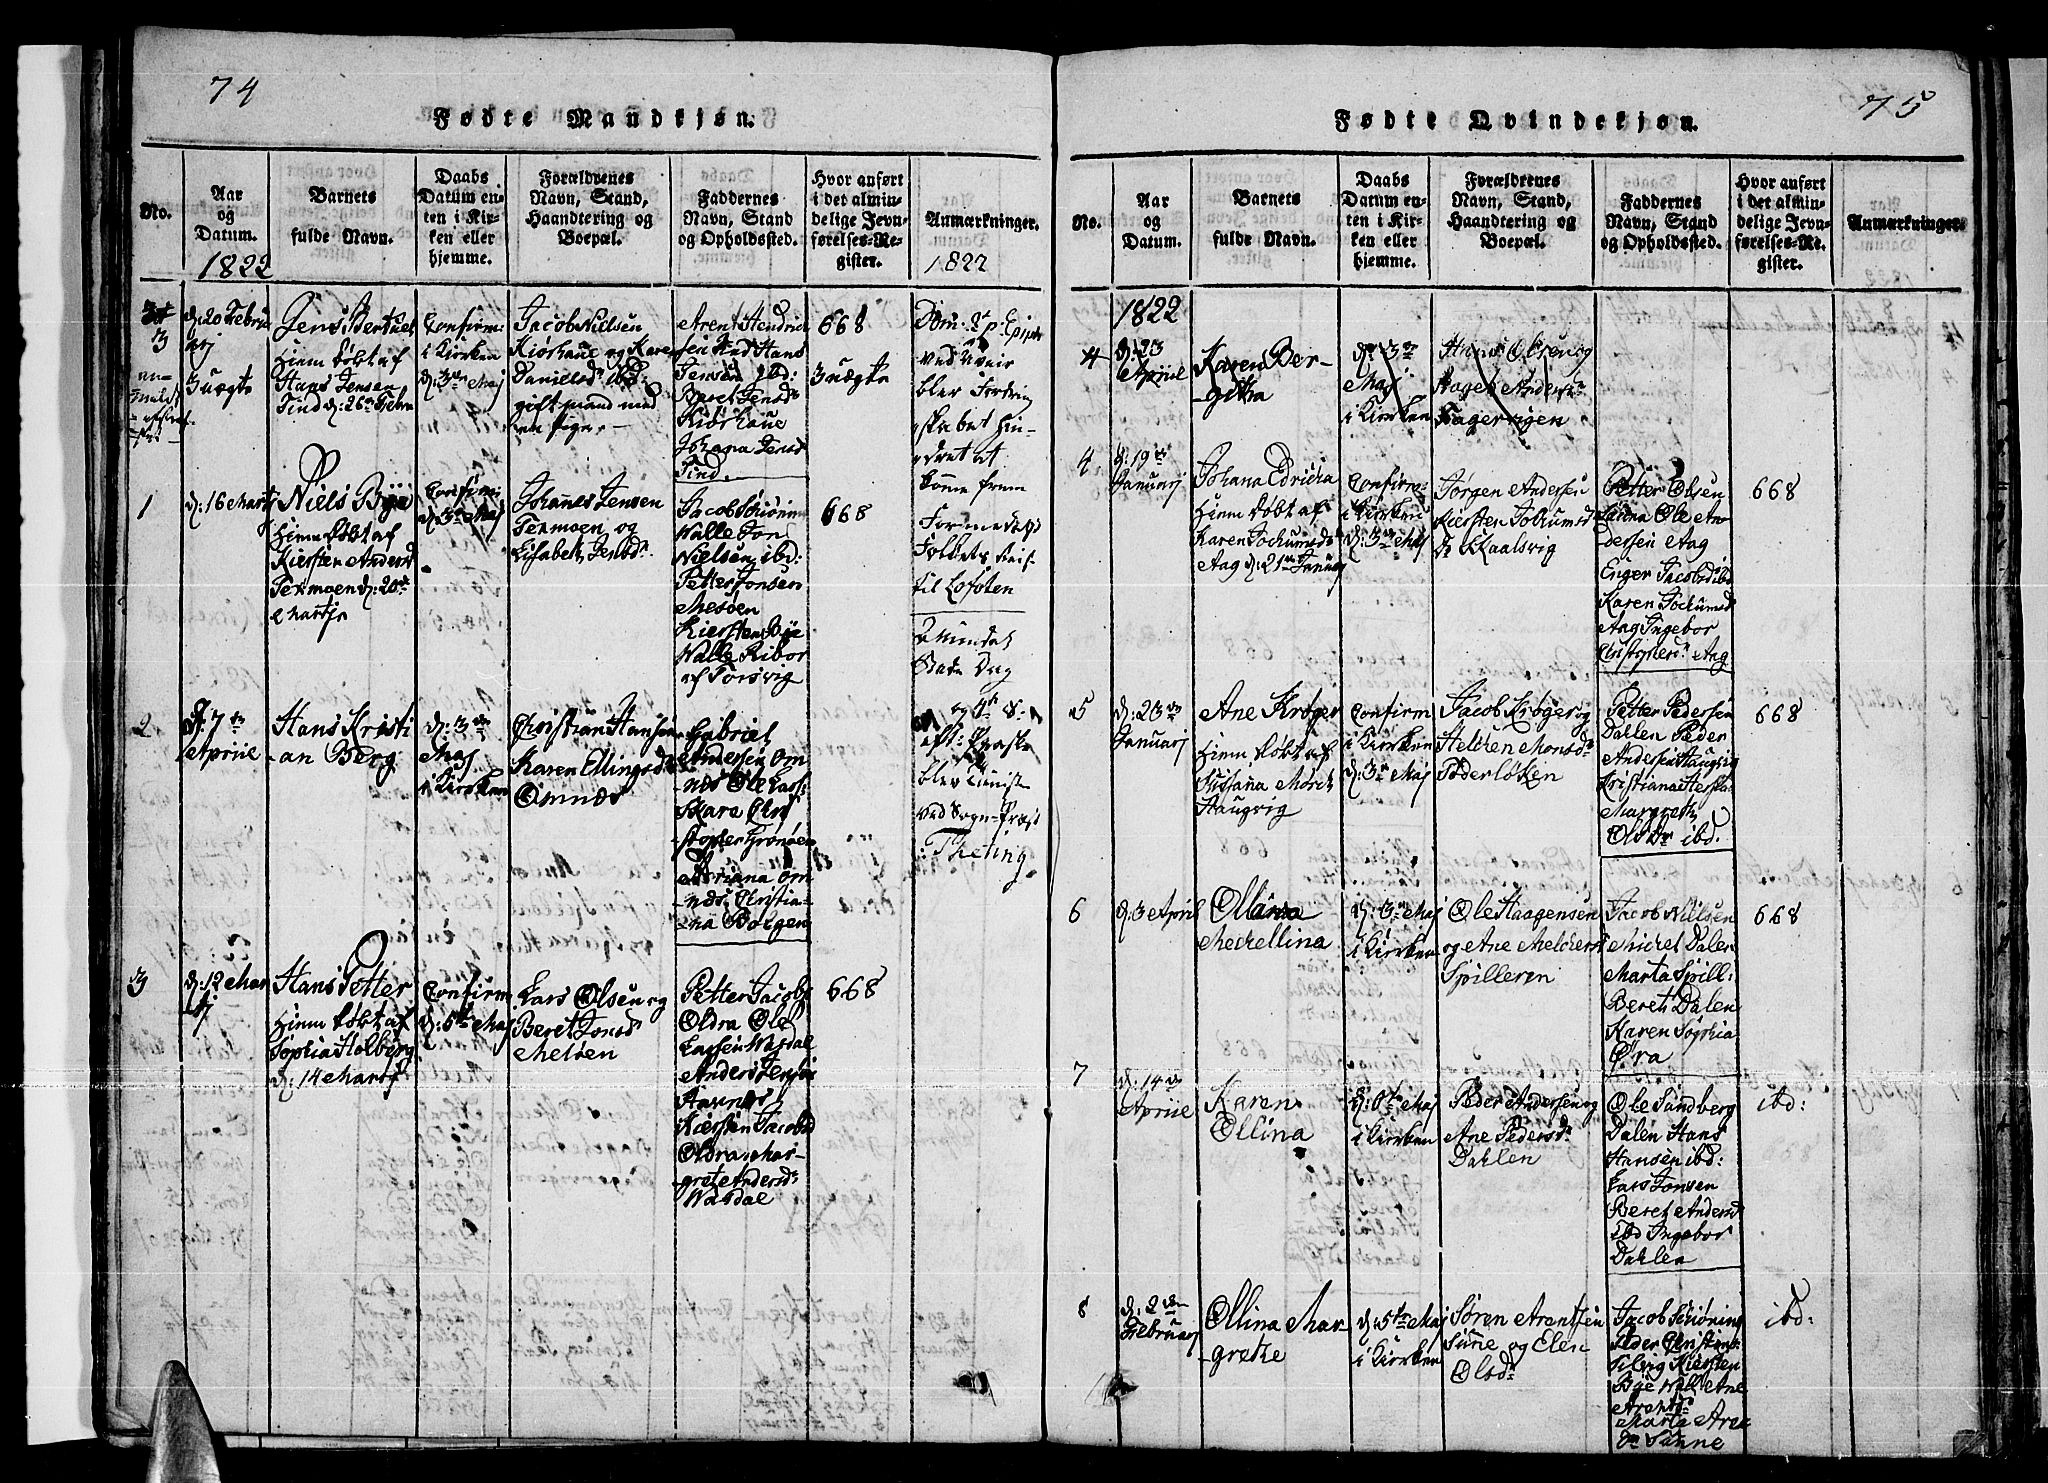 74
Fødte Mandkjøn.
No.
Aar
og
Datum.
1822
Barnets
fulde Navn.
Daabs
Datum en-
ten i Kir-
ken eller
hjemme.
Forældrenes
Navn, Stand,
Haandtering og
Boepæl.
Faddernes
Navn, Stand
og Opholdssted.
Hvor anført
i det almin-
delige Jevn-
førelses-Re-
gister.
Anmærkninger.
1822
3
d: 20 Febru
arj
3 uægte
Jens Bertuel
Hiem døbt af
Hans Jensen
Tind d: 26 Febr
Confirm:
i Kirken
d: 3 Maj
Jacob Nielsen
Kiørhaue og Kare
Danielsd ibd:
gift mand med
en pige
Arent Hendric
sen Tind Hans
Jensen ibd:
Beret Jensd
Kiørhaue
Johana Jensd
Tind.
668
3 uægte
Dom: 2 p: Epiph
ved Uveir
blev Forhin
Folkets Reis
til Lofoten
1
d: 16 Martj
Niels Bye
Hiem døbt af
Kiersten Andersd
Termoen d: 20
Martj
Confirm
d: 3 Maj
Johanes Jensen
Termoen og
Elisabet Jensd
Jacob Schiønin
Walle Jon
Nielsen ibd:
Petter Jonsen
Mesøen
Kiersten Bye
Walle Ribor
af Torsvig
668
2
d: 7
Apriil
Hans Kristi
-an Berg
d: 3
Maj
i Kirken
Christian Hansen
Karen Ellingsd
Omnæs
Gabriel
Andersen Om
næs Ole Lars:
Skare Chri
stopher Grønøen
Adriana Om
næs Christia-
na Bolgen
ved Sogn-Præst
Theting
3
d: 12 Mar
tj
Hans Petter
Hiem døbt af
Sophia Holberg
d: 14 Martj
Confirm
d: 5 Maj
Lars Olsen og
Beret Jonsd
Meløen
Petter Jacobs
Oldra Ole
Larsen Wasdal
Anders Jensen
Aarnes
Kiersten Jacobsd
Oldra Mar-
grete Andersd:
Wasdal
668
75
Fødte Qvindekjøn.
No.
Aar
og
Datum.
Barnets
fulde Navn.
Daabs
Datum en-
ten i Kir-
ken eller
hjemme.
Forældrenes
Navn, Stand,
Haandtering og
Boepæl.
Faddernes
Navn, Stand
og Opholdssted.
Hvor anført
i det almin-
delige Jevn-
førelses-Re-
gister.
Anmærkninger.
1822
4
d: 23
Apriil
Karen Ber-
-githa
d: 3
Maj
i Kirken
Hans Olsen og
Anders
Hagervigen
4
d: 19
Januarj
Johana Edricka
Hiem døbt af
Karen Jochumsd
Aag d: 21 Januarj
Confirm:
i Kirken
d: 3 Maj
Jørgen Andersen
Kiersten Jochumsd
Skaalsvig
Petter Olsen
Ole An
dersen Aag
Enger Jacobsd ibd
Karen Jochumsd
Aag Ingebor
Cristophers Aag
668
5
d: 23
Januarj
Ane Krøger
Hiem døbt af
Susana Morck
Haugvig
Confirm
i Kirken
d: 3 Maj
Jacob Krøger og
Helchen Monsd
Føderløken
Petter Pedersen
Dahlen Peder
Andersen Haugvig
Kristiana
Margreth
Olsd ibd.
668
6
d: 3 April
Ollina
Meckellina
d: 3 Maj
i Kirken
Ole Haagensen
og Ane Melchers
Spilleren
Jacob Nielsen
Michel Dalen
Marta Spill:
Beret Dalen
Karen Sophia
Øra
668
7
d: 14
Apriil
Karen
Ollina
d: 6 Maj
i Kirken
Peder Andersen og
Ane Pedersd
Dahlen
Ole Sundberg
Dalen Hans
Hansen ibd:
Lars Jonsen
Beret Andersd
ibd Ingebor
Dahlen
ibd:
8
d: 2
Februarj
Ollina Mar-
-grethe
d: 5 Maj
i Kirken
Søren Arentsen
Sunne og Elen
Olsd
Jacob Schiøning
Peder Christens
Silvig Kiersten
Bye Wall Ane
Arentsd
Marta Are
Sunne
ibd: